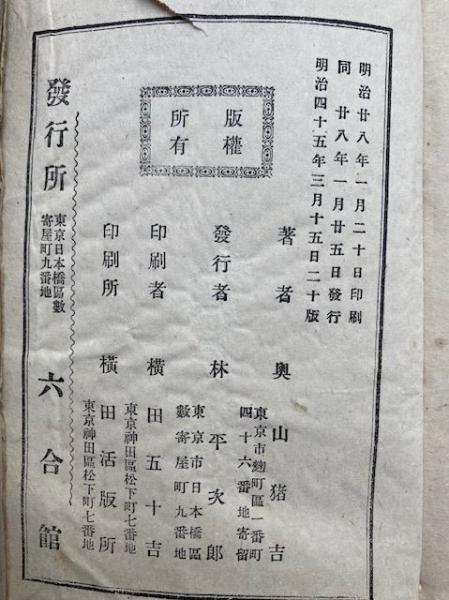 明治廿八年一月二十日印刷
同廿八年一月廿五日發行
明治四十五年三月十五日二十版
版權
所有
著者 奧山猪吉
東京市麴町區一番町
四十六番地寄留
發行者 林平次郎
東京市日本橋區
數寄屋町九番地
印刷者 橫田五十吉
東京神田區松下町七番地
印刷所 橫田活版所
東京神田區松下町七番地
發行所
東京日本橋區數
寄屋町九番地
六合館